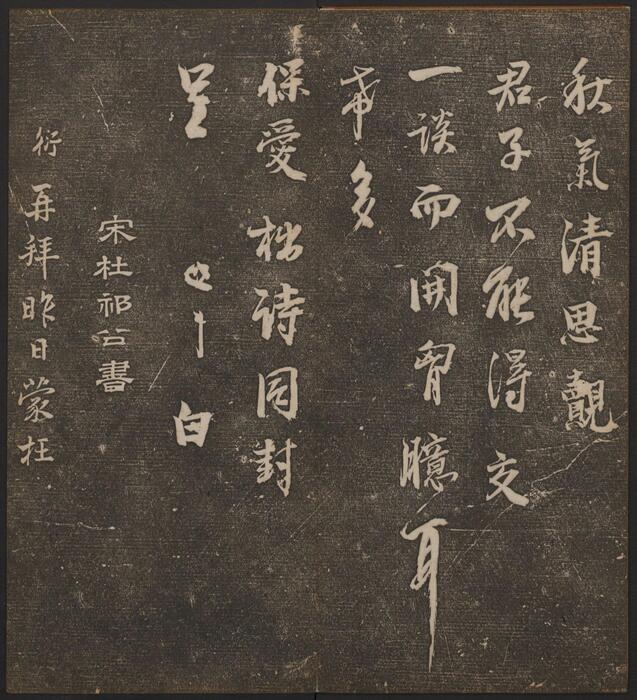 秋氣清思觀
君子不能得交
一談而開胷臆耳
希多
保愛拙詩同封
呈 白
宋杜祁公書
衍再拜昨日蒙枉